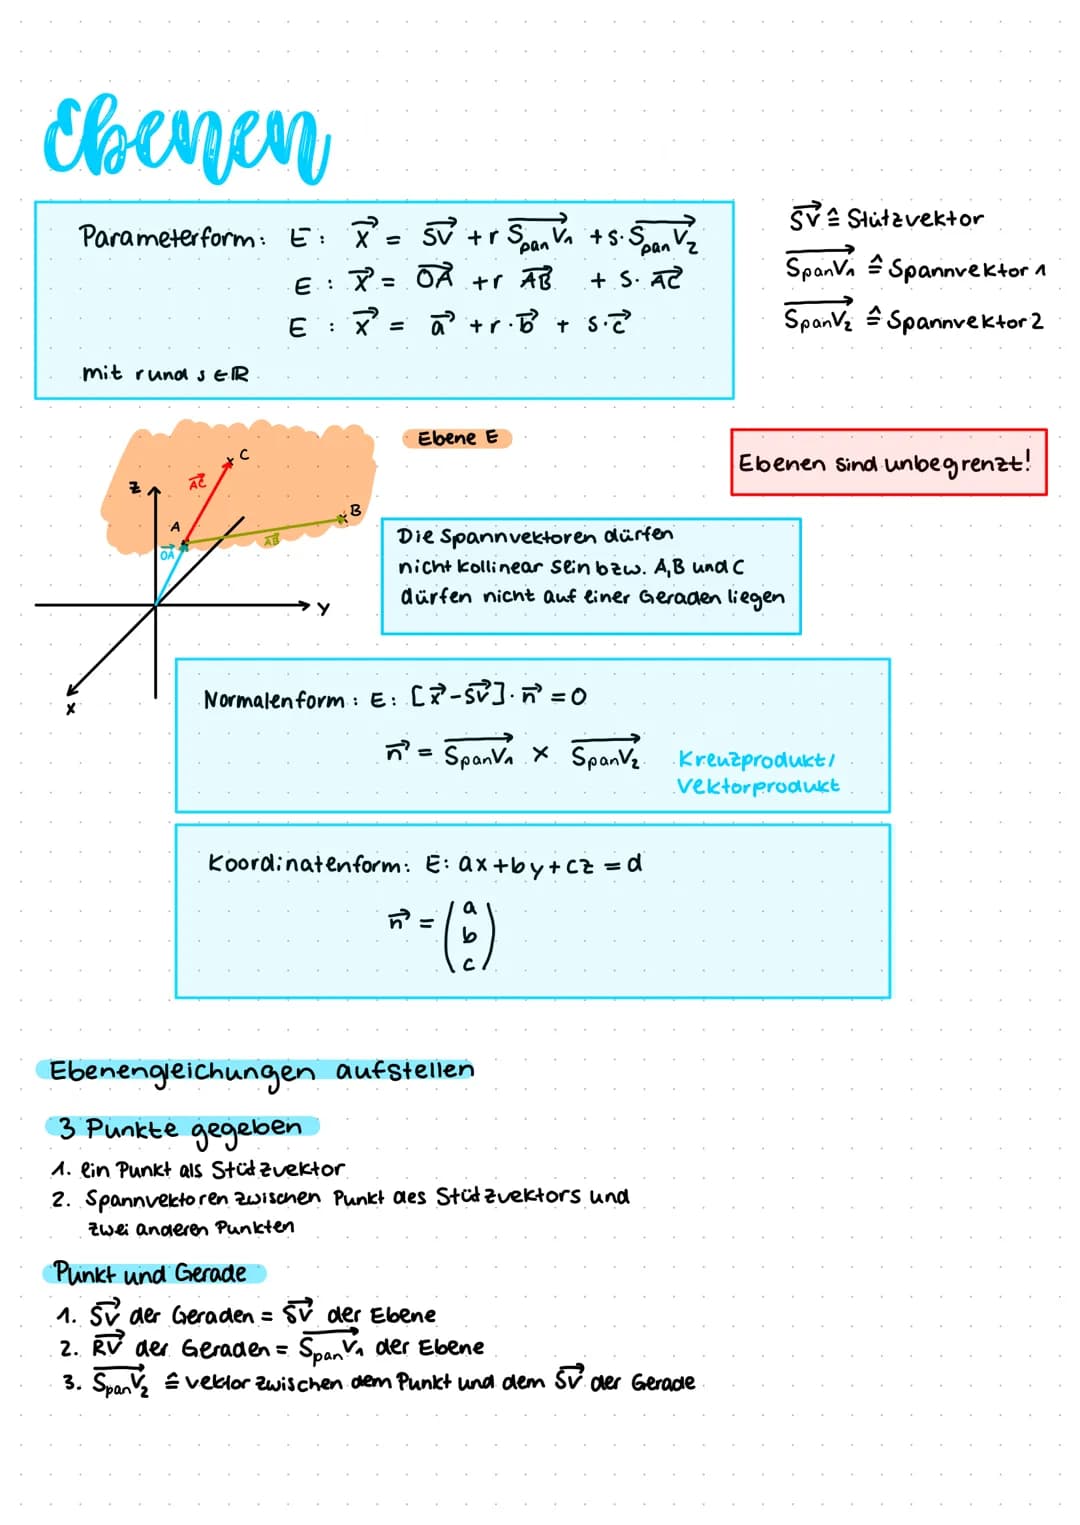 Ebenen
Parameterform: E: x⃗ = SV⃗ + r SpanV₁⃗ + s · SpanV₂⃗
E : x⃗ = OA⃗ + r AB⃗ + s · AC⃗
E : x⃗ = a⃗ + r · b⃗ + s · c⃗
mit r und s ∈ ℝ
SV⃗ ≙ Stützvektor
SpanV₁⃗ ≙ Spannvektor 1
SpanV₂⃗ ≙ Spannvektor 2
Ebene E
Ebenen sind unbegrenzt!
C
AC⃗
z
B
A
AB⃗
OA⃗
y
x
Die Spannvektoren dürfen
nicht kollinear sein bzw. A,B und C
dürfen nicht auf einer Geraden liegen
Normalenform : E: [x⃗ - SV⃗] · n⃗ = 0
n⃗ = SpanV₁⃗ × SpanV₂⃗
Kreuzprodukt/
Vektorprodukt
Koordinatenform: E: ax + by + cz = d
n⃗ = (a
b
c)
Ebenengleichungen aufstellen
3 Punkte gegeben
1. ein Punkt als Stützvektor
2. Spannvektoren zwischen Punkt des Stützvektors und
zwei anderen Punkten
Punkt und Gerade
1. SV⃗ der Geraden = SV⃗ der Ebene
2. RV⃗ der Geraden = SpanV₁⃗ der Ebene
3. SpanV₂⃗ ≙ vektor zwischen dem Punkt und dem SV⃗ der Gerade